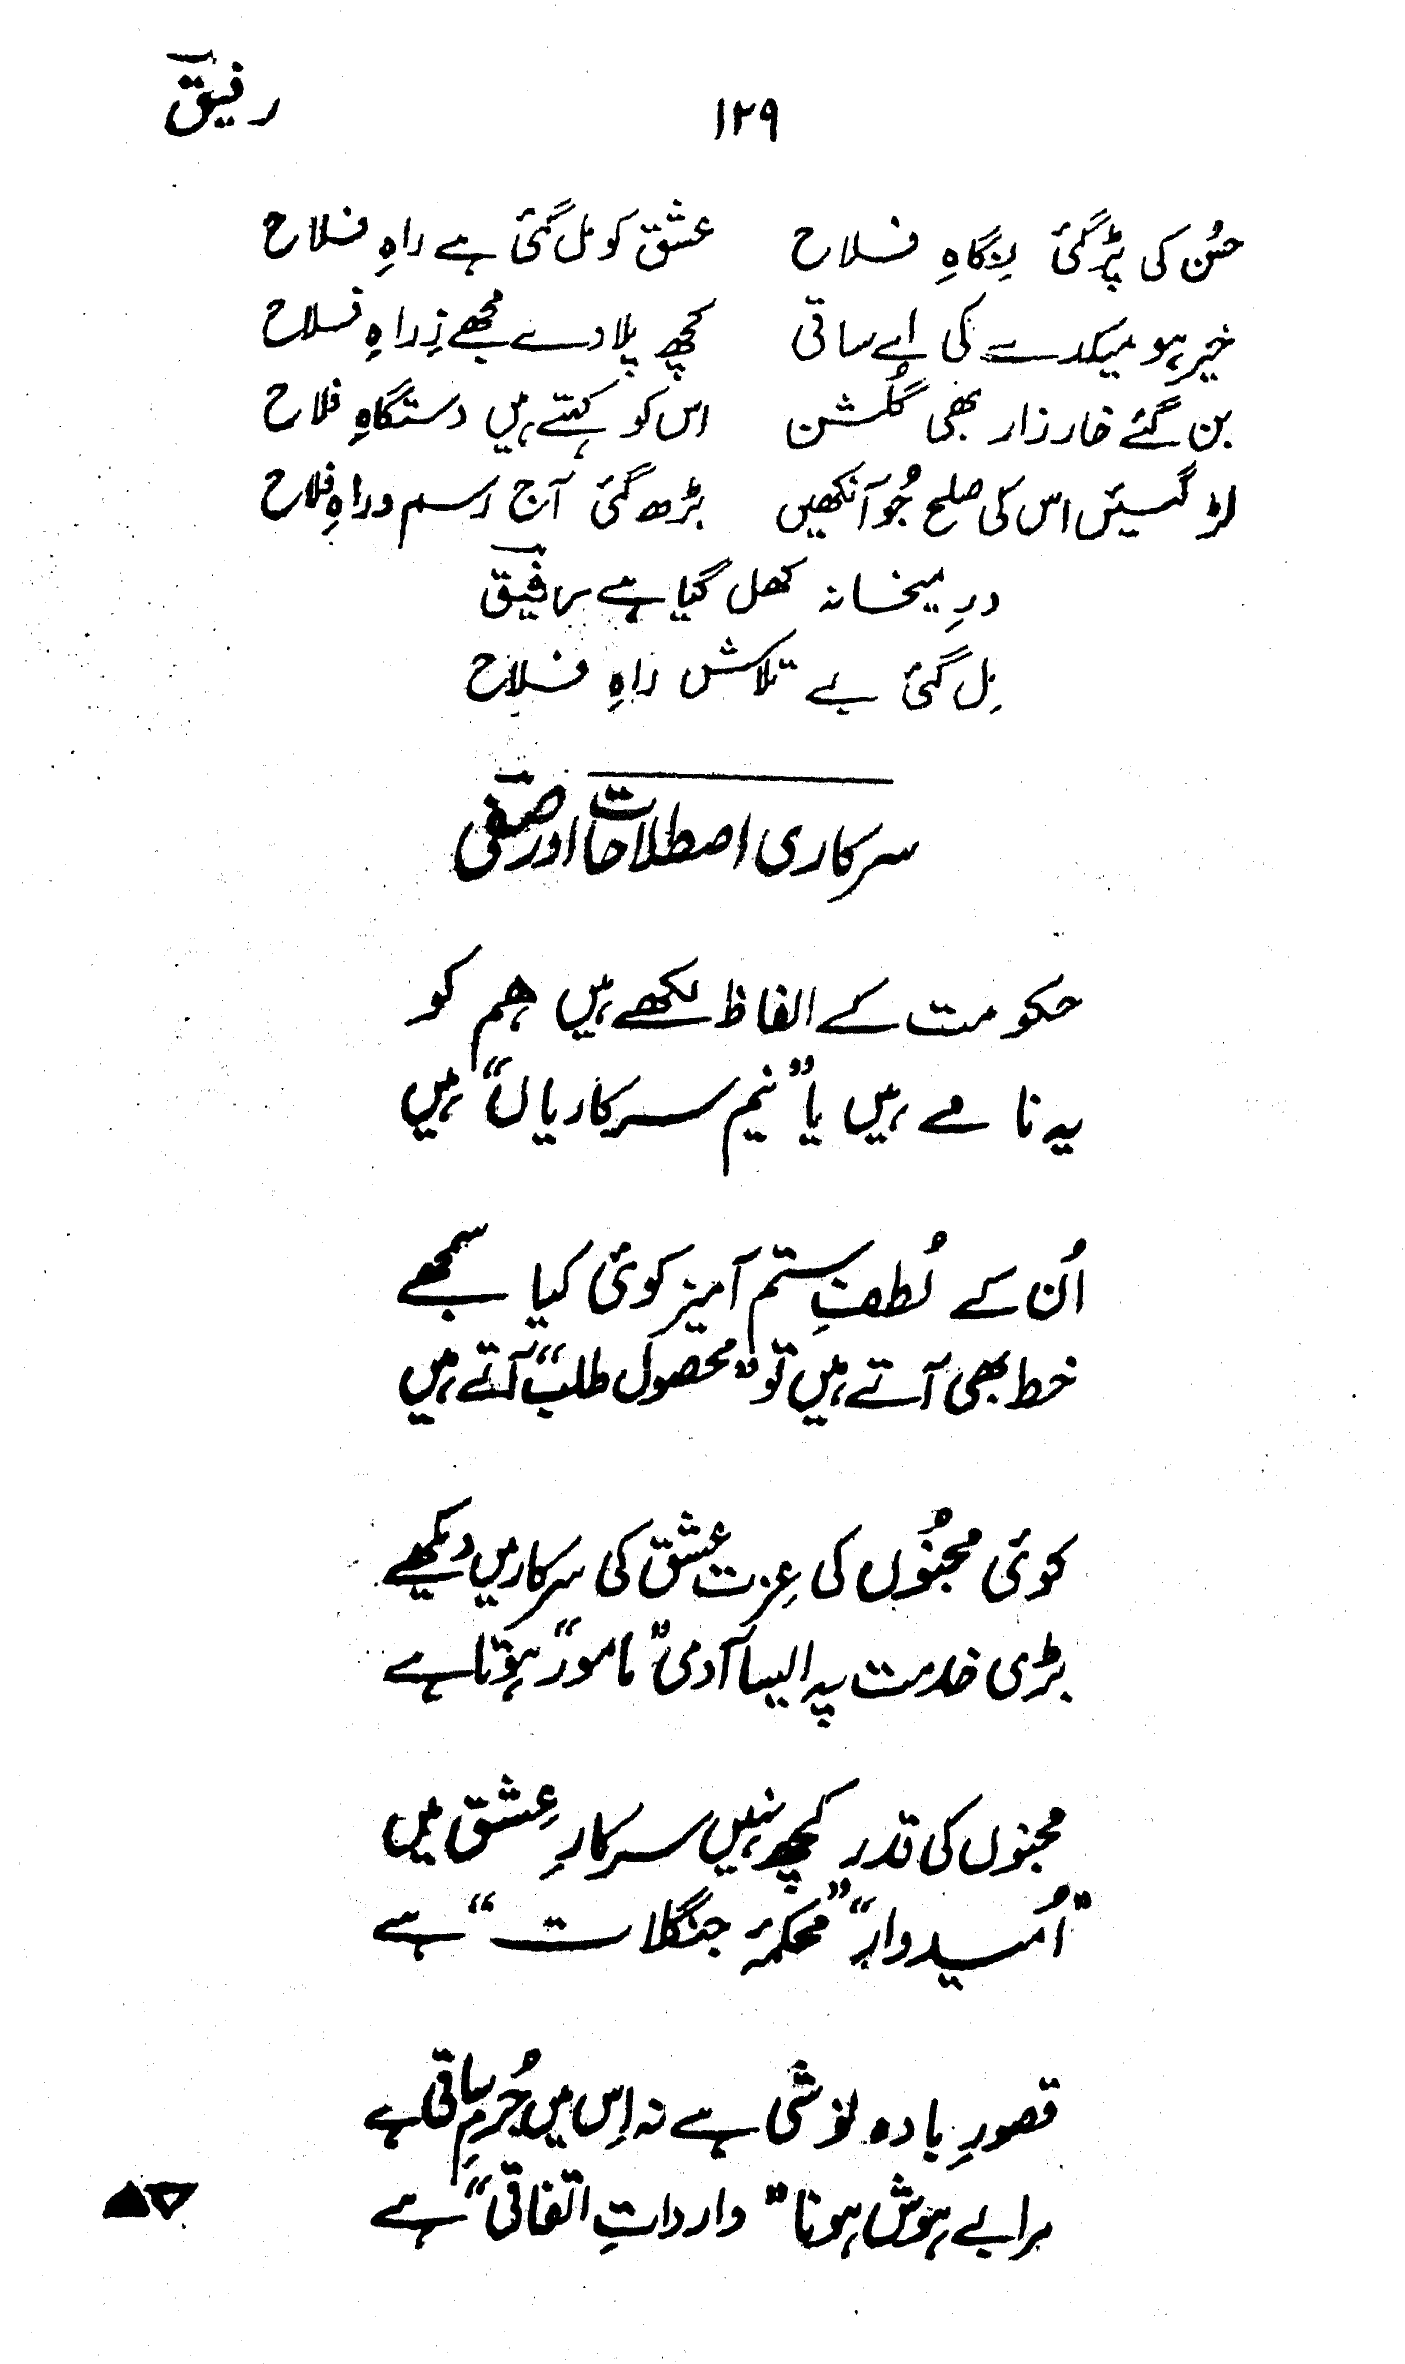 رفیقؔ
۱۲۹
حسُن کی پڑ گئی نِگاہِ فلاح عشق کو مل گئی ہے راہِ فلاح
خیر ہو میکدے کی اے ساقی کچھ پلا دے مجھے زِراہِ فلاح
بن گئے خار زار بھی گلُشن اس کو کہتے ہیں دستگاہِ فلاح
لڑ گئیں اس کی صلح جُو آنکھیں بڑھ گئی آج رسم و راہِ فلاح
درِ میخانہ کھل گیا ہے رفیقؔ
مِل گئی بے تلاش راہِ فلاح
سرکاری اصطلاحات اور صفیؔ
حکومت کے الفاظ لکھے ہیں ہم کو
یہ نامے ہیں یا ”نیم سرکاریاں“ ہیں
اُن کے لُطفِ ستم آمیز کوئی کیا سمجھے
خط بھی آتے ہیں تو ”محصول طلب“ آتے ہیں
کوئی مجنُوں کی عِزت عشق کی سرکار میں دیکھے
بڑی خدمت پہ ایسا آدمی ”مامور“ ہوتا ہے
مجنوں کی قدر کچھ نہیں سرکارِ عِشق میں
”اُمیدوارِ“ ”محکمۂ جنگلات“ ہے
قصورِ بادہ نوشی ہے نہ اِس میں جُرمِ ساقی ہے
مرا بے ہوش ہونا ”وارداتِ اتفاقی“ ہے